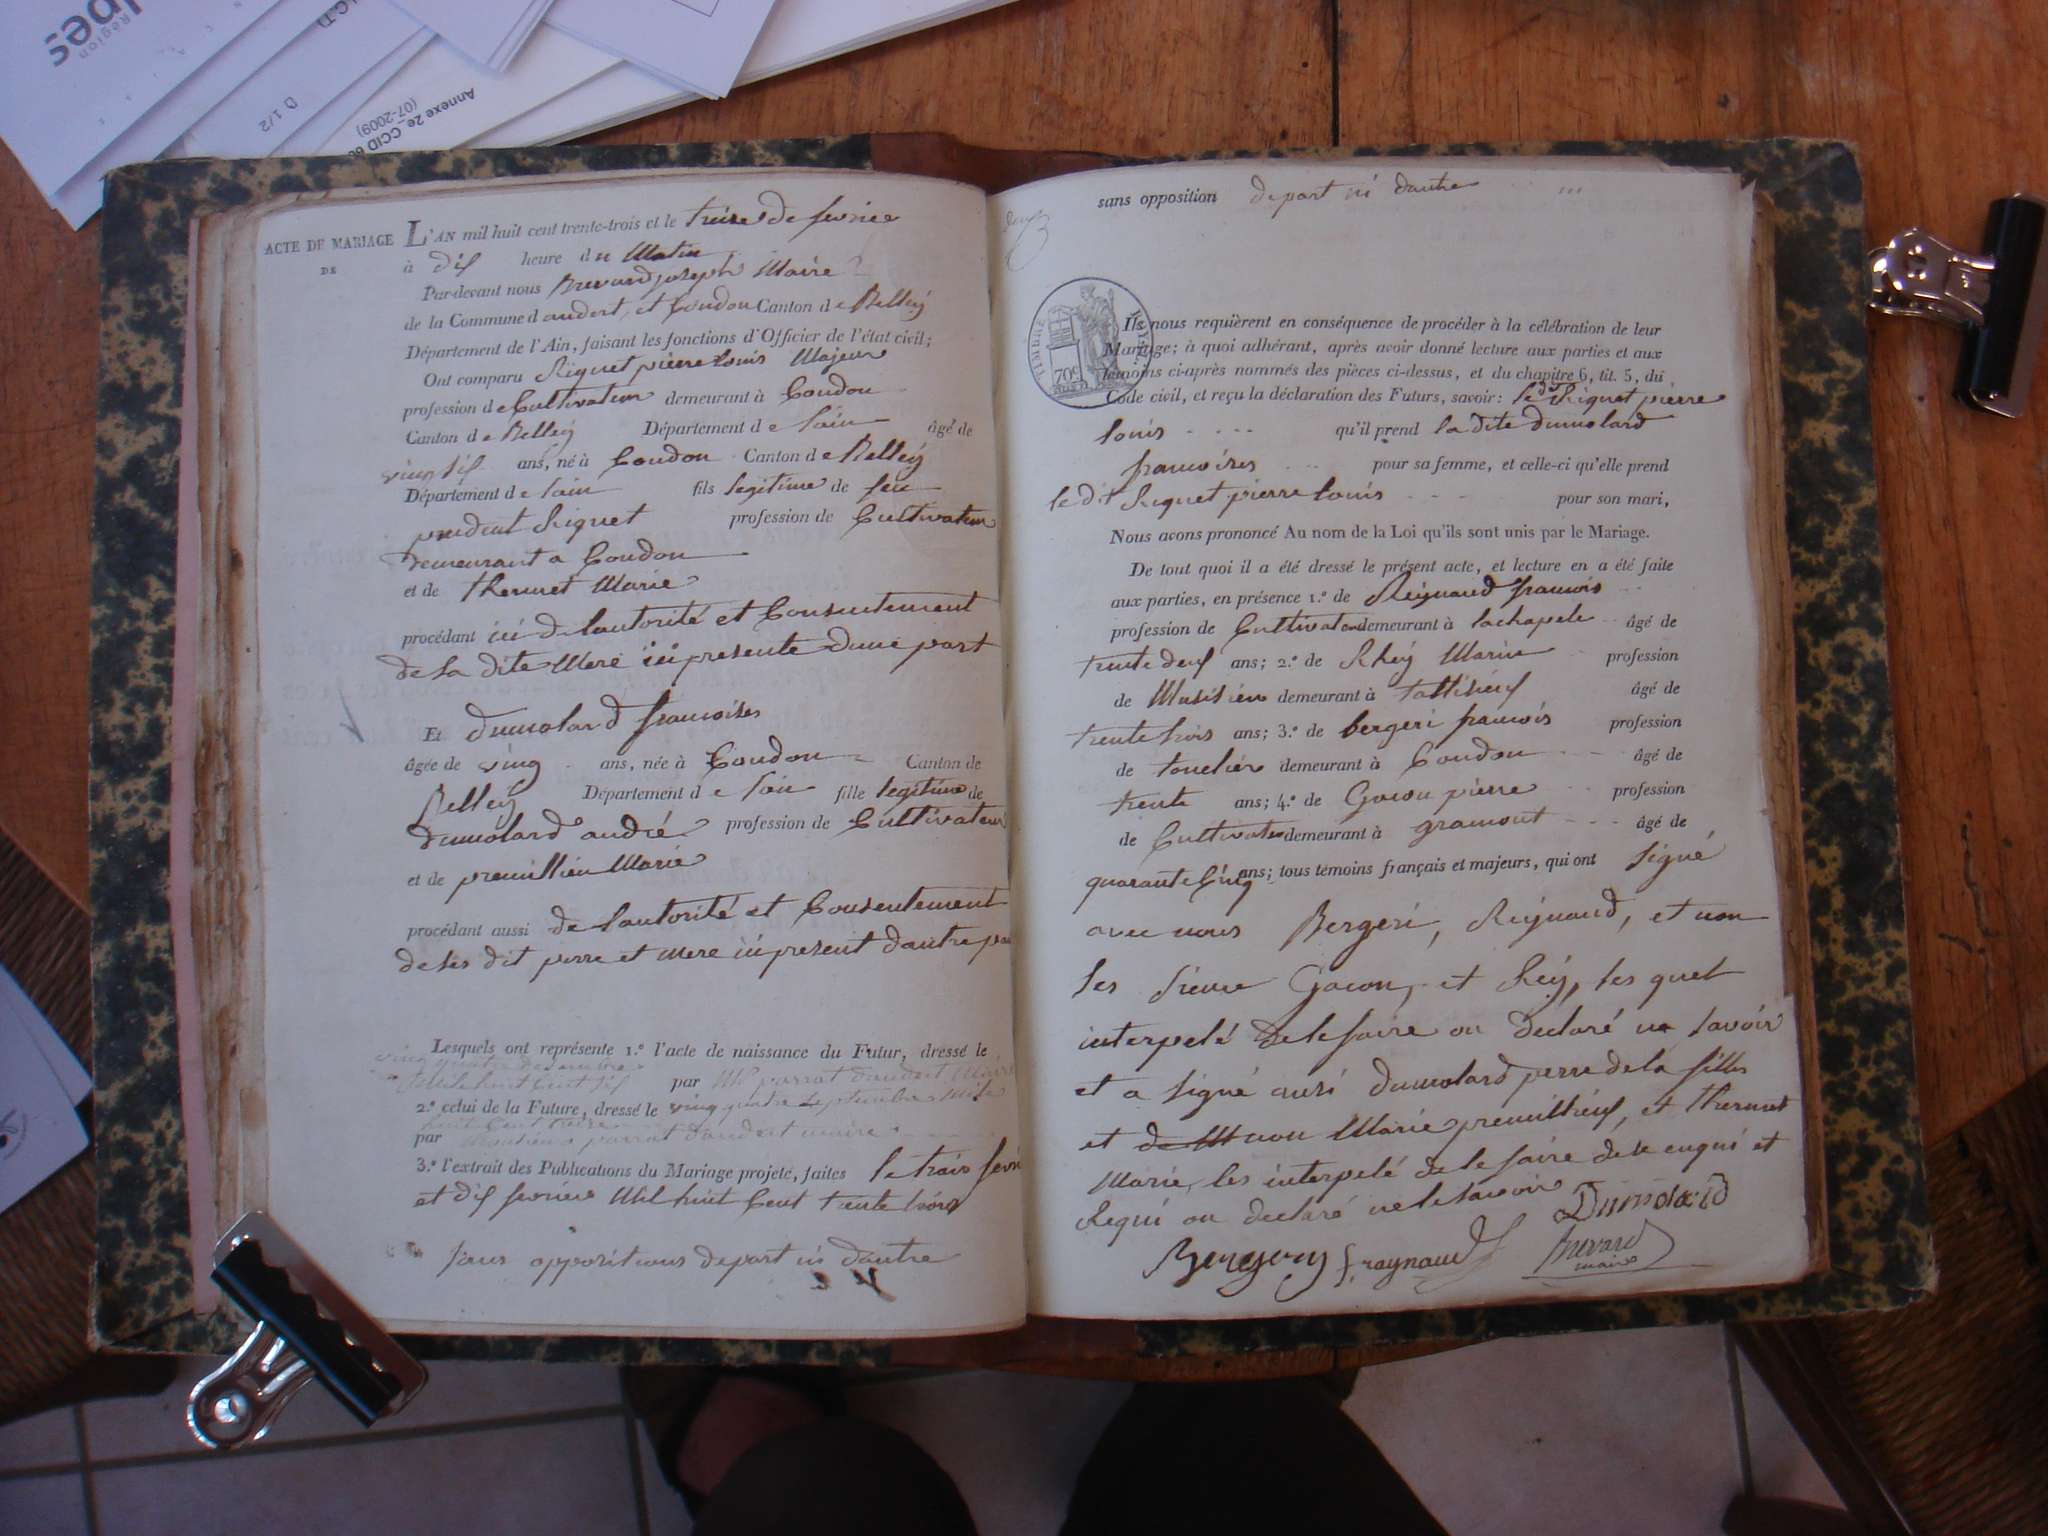 Région
D 1/2
Annexe 2e_CCID
(07-2009)
ACTE DE MARIAGE
DE
L'AN mil huit cent trente-trois et le treise de fevrier
à dix heure du Matin
Par-devant nous Brevard joseph Maire
de la Commune d andert, et Condon Canton de Belleÿ
Département de l'Ain, faisant les fonctions d'Officier de l'état civil;
Ont comparu Riquet pierre Louis Majeur
profession de Cultivateur demeurant à Condon
Canton de Belleÿ Département de lain âgé de
vingt six ans, né à Condon Canton de Belleÿ
Département de lain fils legitime de feu
prudent Riquet profession de Cultivateur
demeurant a Condon
et de thermet Marie
procédant ici de lautorité et Consentement
de sa dite Mere ici presente dune part
Et dumolard francoises
âgée de ving ans, née à Condon Canton de
Belleÿ Département de lain fille legitime de
dumolard andré profession de Cultivateur
et de premillieu Marie
procédant aussi de lautorité et Consentement
de ses dit perre et mere ici present dautre part
Lesquels ont représenté 1.º l'acte de naissance du Futur, dressé le
ving quatre decembre
Mil huit Cent six par Mr parrat dandert Maire
2.º celui de la Future, dressé le ving quatre septembre mile
huit Cent treize
par Monsieur parrat dandert maire
3.º l'extrait des Publications du Mariage projeté, faites le trois fevrie
et dix fevrier Mil huit Cent trente trois
sans oppositions depart ni dautre
sans opposition depart ni dautre
TIMBRE ROYAL
70c
Ils nous requièrent en conséquence de procéder à la célébration de leur
Mariage; à quoi adhérant, après avoir donné lecture aux parties et aux
témoins ci-après nommés des pièces ci-dessus, et du chapitre 6, tit. 5, du
Code civil, et reçu la déclaration des Futurs, savoir: le dt Riquet pierre
louis qu'il prend la dite dumolard
francoises pour sa femme, et celle-ci qu'elle prend
le dit Riquet pierre louis pour son mari,
Nous avons prononcé Au nom de la Loi qu'ils sont unis par le Mariage.
De tout quoi il a été dressé le présent acte, et lecture en a été faite
aux parties, en présence 1.º de Reignaud francois
profession de Cultivateur demeurant à lachapele âgé de
trente deux ans; 2.º de Rheÿ Marin profession
de Musisien demeurant à tallisieux âgé de
trente trois ans; 3.º de bergeri francois profession
de tonelier demeurant à Condon âgé de
trente ans; 4.º de Gacon pierre profession
de Cultivateur demeurant à gramont âgé de
quarante Cinq ans; tous témoins français et majeurs, qui ont signé
avec nous Bergeri, Reignaud, et non
les sieur Gacon, et Reÿ, les quel
interpelé de le faire on declaré ne savoir
et a signé ausi dumolard perre de la filles
et de M non Marie premillieux, et thermet
Marie, les interpelé de le faire de se enqui et
Requi on declaré ne le savoir
Dumolard
Bergery f. raynaud Brevard
maire